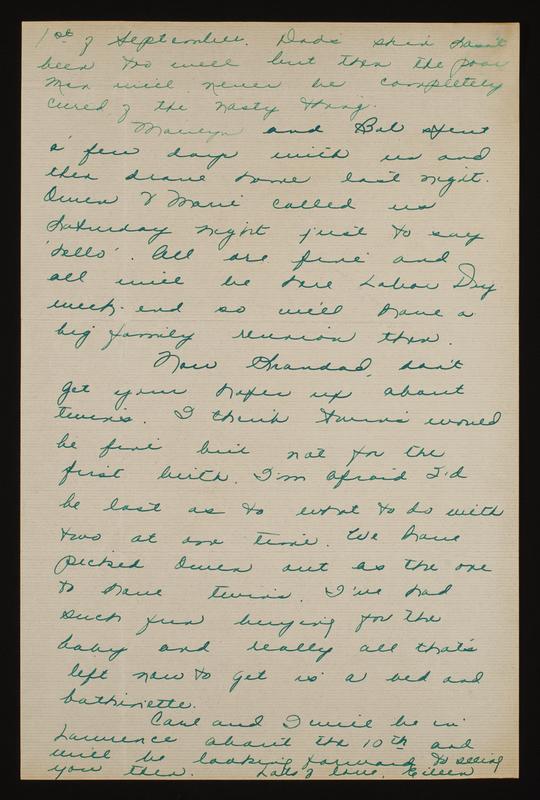 1st of September. Dad's skin hasn't
been too well but then the poor
man will never be completely
cured of the nasty thing.
Marilyn and Bob spent
a few days with us and
then drove home last night.
Owen & Marie called us
Saturday night just to say
'hello'. All are fine and
all will be here Labor Day
week-end so we'll have a
big family reunion then.
Now Grandad, don't
get your hopes up about
twins. I think twins would
be fine but not for the
first birth. I'm afraid I'd
be lost as to what to do with
two at one time. We have
picked Owen out as the one
to have twins. I've had
such fun buying for the
baby and really all that's
left now to get is a bed and
bathinette.
Carl and I will be in
Lawrence about the 10th and
will be looking forward to seeing
you then. Lots of love, Eileen